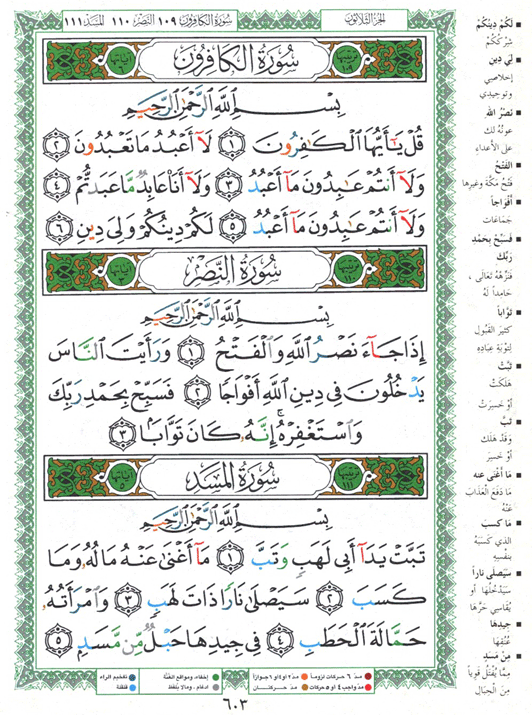 سُورَةُ الكَافِرُونَ ١٠٩ النَّصْر ١١٠ المَسَد ١١١
الجُزْءُ الثَّلَاثُونَ
سُورَةُ الكَافِرُونَ
بِسْمِ اللَّهِ الرَّحْمَٰنِ الرَّحِيمِ
قُلْ يَٰٓأَيُّهَا ٱلْكَٰفِرُونَ ١ لَآ أَعْبُدُ مَا تَعْبُدُونَ ٢
وَلَآ أَنتُمْ عَٰبِدُونَ مَآ أَعْبُدُ ٣ وَلَآ أَنَا۠ عَابِدٌ مَّا عَبَدتُّمْ ٤
وَلَآ أَنتُمْ عَٰبِدُونَ مَآ أَعْبُدُ ٥ لَكُمْ دِينُكُمْ وَلِىَ دِينِ ٦
سُورَةُ النَّصْرِ
بِسْمِ اللَّهِ الرَّحْمَٰنِ الرَّحِيمِ
إِذَا جَآءَ نَصْرُ ٱللَّهِ وَٱلْفَتْحُ ١ وَرَأَيْتَ ٱلنَّاسَ
يَدْخُلُونَ فِى دِينِ ٱللَّهِ أَفْوَاجًا ٢ فَسَبِّحْ بِحَمْدِ رَبِّكَ
وَٱسْتَغْفِرْهُ ۚ إِنَّهُۥ كَانَ تَوَّابًۢا ٣
سُورَةُ المَسَدِ
بِسْمِ اللَّهِ الرَّحْمَٰنِ الرَّحِيمِ
تَبَّتْ يَدَآ أَبِى لَهَبٍ وَتَبَّ ١ مَآ أَغْنَىٰ عَنْهُ مَالُهُۥ وَمَا
كَسَبَ ٢ سَيَصْلَىٰ نَارًا ذَاتَ لَهَبٍ ٣ وَٱمْرَأَتُهُۥ
حَمَّالَةَ ٱلْحَطَبِ ٤ فِى جِيدِهَا حَبْلٌ مِّن مَّسَدٍۭ ٥
■ لَكُمْ دِينُكُمْ
شِرْكُكُمْ
■ لِيَ دِينِ
إخلاصي
وتوحيدي
■ نَصْرُ الله
عونُه لك
على الأعداءِ
■ الفَتْحُ
فتحُ مكّة وغيرها
■ أَفْوَاجاً
جَمَاعَات
■ فَسَبِّحْ بِحَمْدِ
رَبِّكَ
فنَزِّهْهُ تعالى ،
حامداً لَهُ
■ تَوَّاباً
كثيرَ القَبُولِ
لِتَوْبَةِ عِبَادِهِ
■ تَبَّتْ
هَلَكَتْ
أوْ خَسِرَتْ
■ تَبَّ
وَقَدْ هَلَكَ
أوْ خَسِرَ
■ مَا أَغْنَى عَنه
مَا دَفَعَ العَذَابَ
عَنْهُ
■ مَا كَسَبَ
الذي كَسَبَهُ
بِنَفْسِهِ
■ سَيَصْلَى نَاراً
سَيَدْخُلُهَا أو
يُقَاسِي حَرَّهَا
■ جِيدِهَا
عُنُقِهَا
■ مِنْ مَسَدٍ
مِمَّا يُفْتَلُ قَوِيّاً
مِنَ الحِبَالِ
مدّ ٦ حركات لزوماً مدّ ٢ أو ٤ أو ٦ جوازاً
مدّ واجب ٤ أو ٥ حركات مدّ حركتان
إخفاء، ومواقع الغُنَّة تفخيم الراء
إدغام، ومالا يُلفَظ قلقلة
٦٠٣